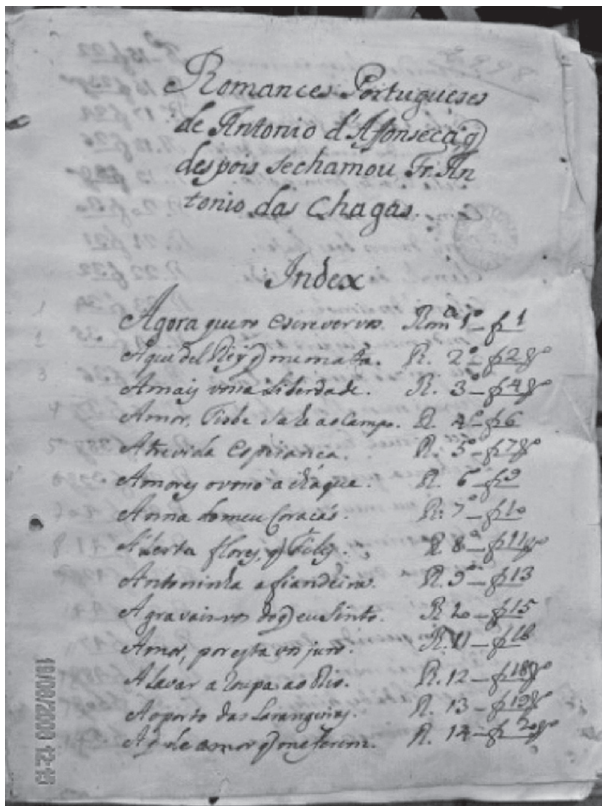 Romances Portugueses
de Antonio d'Afonseca q̃
despois sechamou Fr. An
tonio das Chagas.
Index
1 Agora quero escrevervos. Rom.ce 1º_f 1
2 Aqui del Rey q̃ me mata. R. 2º_f 2 vº
3 Amais vossa liberdade. R. 3º_f 4 vº
Amor, Tisbe sale ao Campo. R. 4º_f 6
Atrevida Esperança. R. 5º_f 7 vº
Amores R. 6º_f 9
Anna do meu Coraçaõ. R. 7º_f 10
Alerta flores, q̃ Filis. R. 8º_f 11 vº
Antoninha a fiandeira. R. 9º_f 13
Agravaivos do q̃ eu sinto. R 10_f 15
Amor, por esta vos juro. R. 11_f 16
A lavar a roupa ao Rio. R. 12_f 18 vº
Ao porto das Larangeiras. R. 13_f 19 vº
Ay de amor q̃ me ferem. R. 14_f 20 vº
19/08/2003 12:15